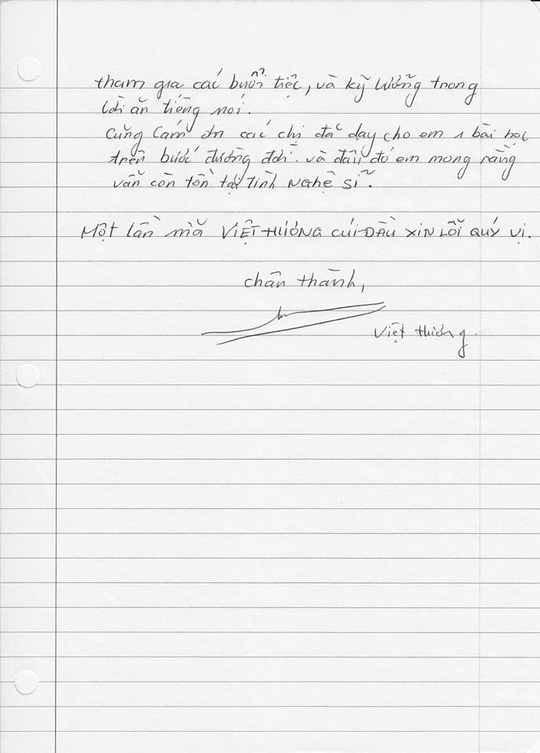 tham gia các buổi tiệc, và kỹ lưỡng trong
lời ăn tiếng nói.
Cũng cám ơn các chị đã dạy cho em 1 bài học
trên bước đường đời. và đâu đó em mong rằng
vẫn còn tồn tại tình nghệ sĩ.
Một lần nữa VIỆT HƯƠNG CÚI ĐẦU XIN LỖI QUÝ VỊ.
chân thành,
Việt Hương.